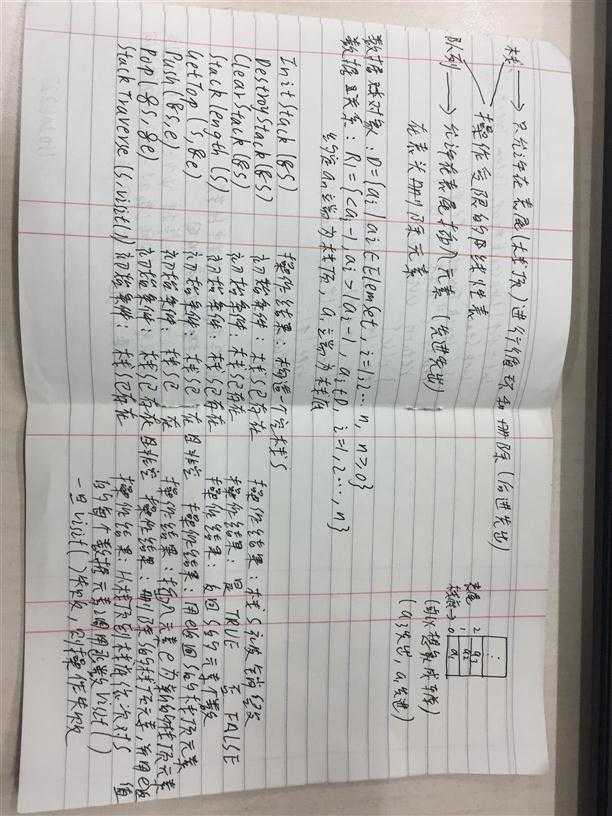 栈 → 只允许在表尾(栈顶)进行插入和删除(后进先出)
操作受限的线性表
队列 → 允许在表尾插入元素(先进先出)
在表头删除元素
数据对象:D={ai|ai∈ElemSet, i=1,2,…n, n≥0}
数据关系:R1={<ai-1,ai>|ai-1,ai∈D, i=1,2…,n}
约定an端为栈顶,a1端为栈底
表尾
栈底→
0 1 2
a1 a2 a3 ⋮
(a3先出,a1先进)
InitStack(&S) 操作结果:构造一个空栈S
DestroyStack(&S) 初始条件:栈S已存在 操作结果:栈S被销毁
ClearStack(&S) 初始条件:栈S已存在 操作结果:是 TRUE 否 FALSE
StackLength(S) 初始条件:栈S已存在 操作结果:返回S的元素个数
GetTop(S,&e) 初始条件:栈S已存在且非空 操作结果:用e返回S的栈顶元素
Push(&S,e) 初始条件:栈S已存在 操作结果:插入元素e为新的栈顶元素
Pop(&S,&e) 初始条件:栈S已存在且非空 操作结果:删除S的栈顶元素 并用e返回值
StackTraverse(S,visit()) 初始条件:栈S已存在 操作结果:从栈底到栈顶依次对S
的每个数据元素调用函数visit()
一旦visit()失败,则操作失败